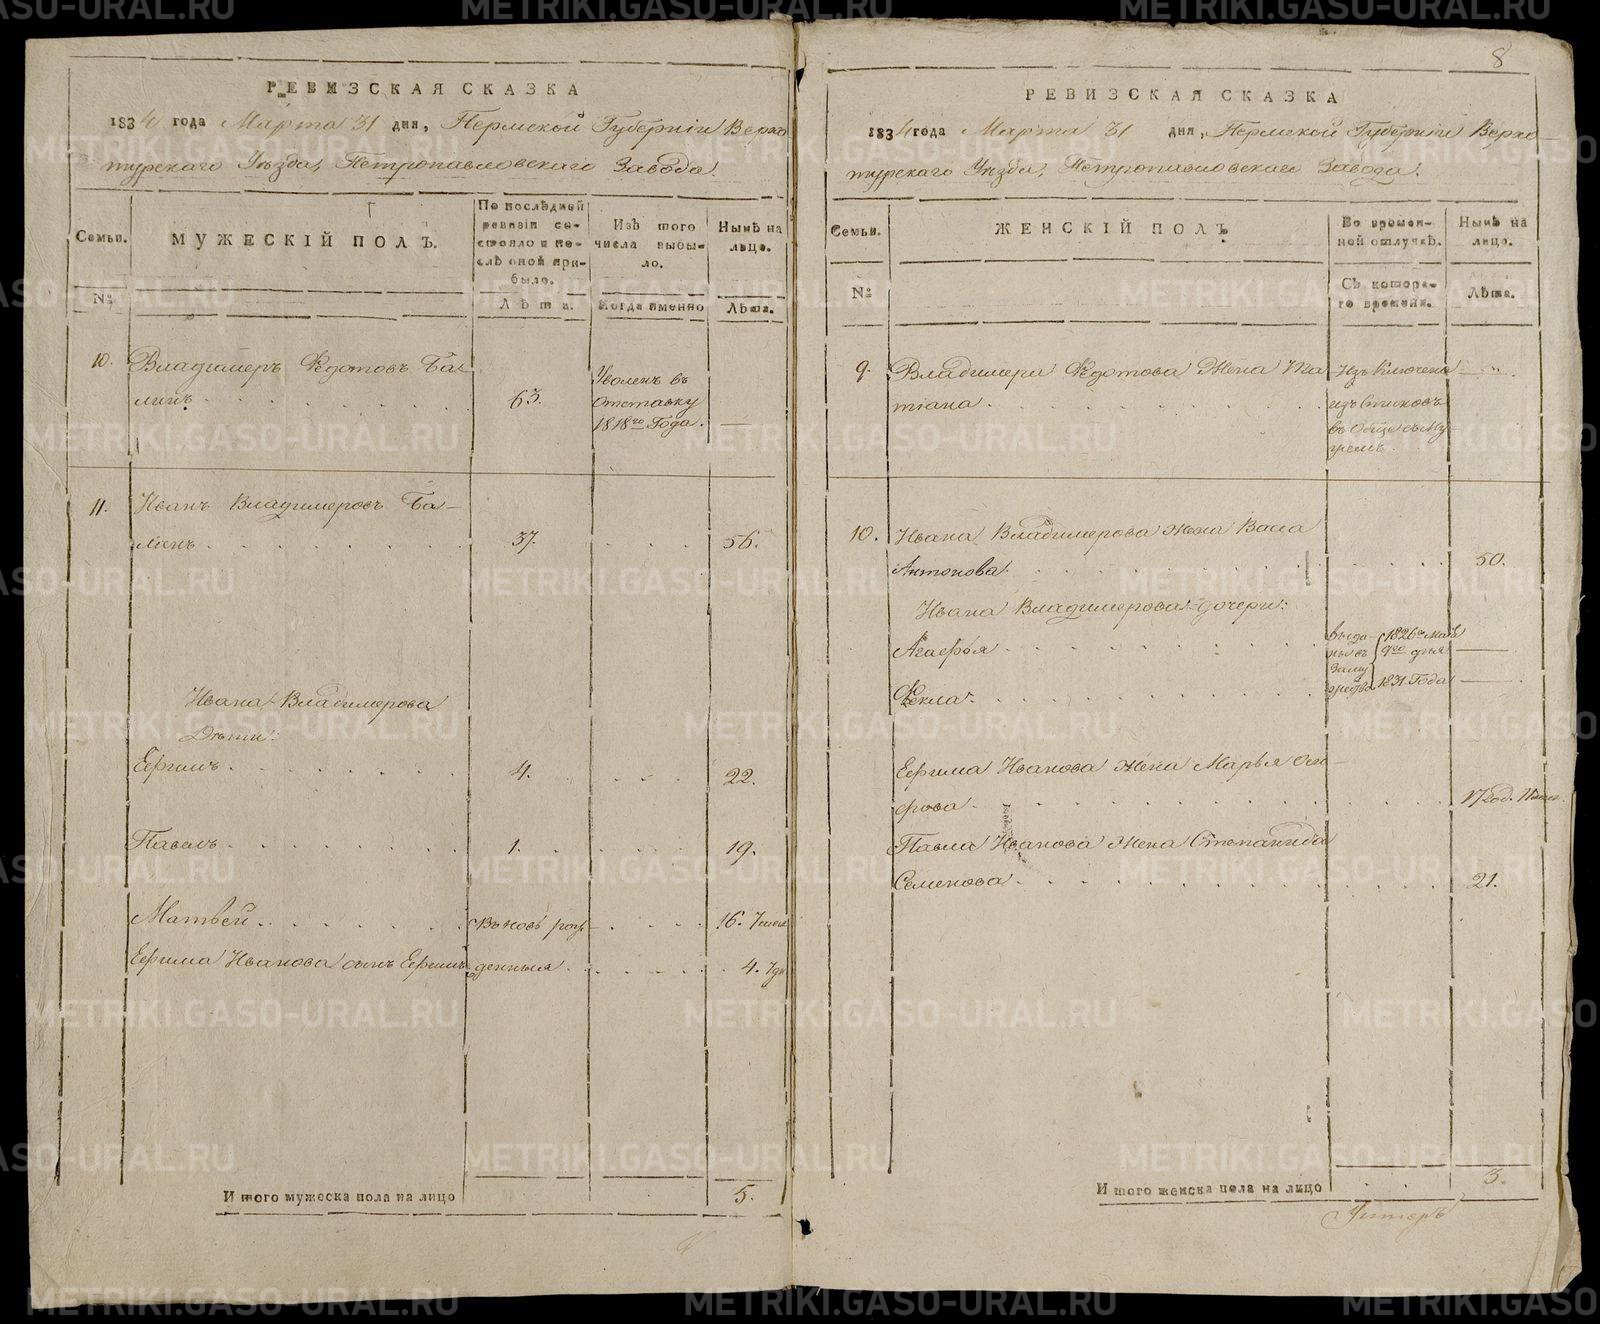 РЕВИЗСКАЯ СКАЗКА
1834 года Марта 31 дня, Пермской Губернiи Верхо
турскаго Уѣзда, Петропавловскаго Завода.
Семьи.
МУЖЕСКIЙ ПОЛЪ.
По послѣдней ревизiи состояло и послѣ оной прибыло.
Изъ того числа выбыло.
Нынѣ на лицо.
№
Лѣта.
Когда именно
Лѣта.
10. Владимеръ Федотовъ Ба
линъ 63. Уволенъ въ
отставку
1818го Года. —
11. Иванъ Владимеровъ Ба-
линъ 37. 56.
Ивана Владимерова
Дѣти:
Ефимъ 4. 22.
Павелъ 1. 19.
Матвей вновь рож- 16. 7
Ефима Иванова сынъ Ефимъ денныя 4. 7
И того мужеска пола на лицо 5.
8
РЕВИЗСКАЯ СКАЗКА
1834 года Марта 31 дня, Пермской Губернiи Верхо-
турскаго Уѣзда, Петропавловскаго Завода.
Семьи.
ЖЕНСКIЙ ПОЛЪ
Во временной отлучкѣ.
Нынѣ на лицо.
№
Съ котораго времени.
Лѣта.
9. Владимера Федотова Жена Та Изключена —
тiана изъ списковъ
въ обще съ му
жемъ.
10. Ивана Владимерова Жена Васа
Антонова 50.
Ивана Владимерова дочери:
Агафья выда- 1826го Маiя
ны въ 9го дня —
Фекла замужества 1831 Года —
Ефима Иванова Жена Марья
17 год. 11
Павла Иванова Жена Степанида
Семенова 21.
И того женска пола на лицо 3.
METRIKI.GASO-URAL.RU